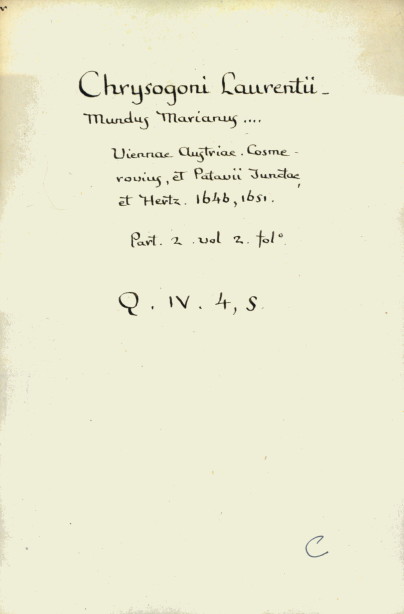 Chrysogoni Laurentii -
Mundus Marianus ....
Viennae Austriae. Cosme -
rovius, et Patavii Junctae,
et Hertz. 1646, 1651.
Part. 2. vol 2. fol°.
Q. IV. 4, 5.
C